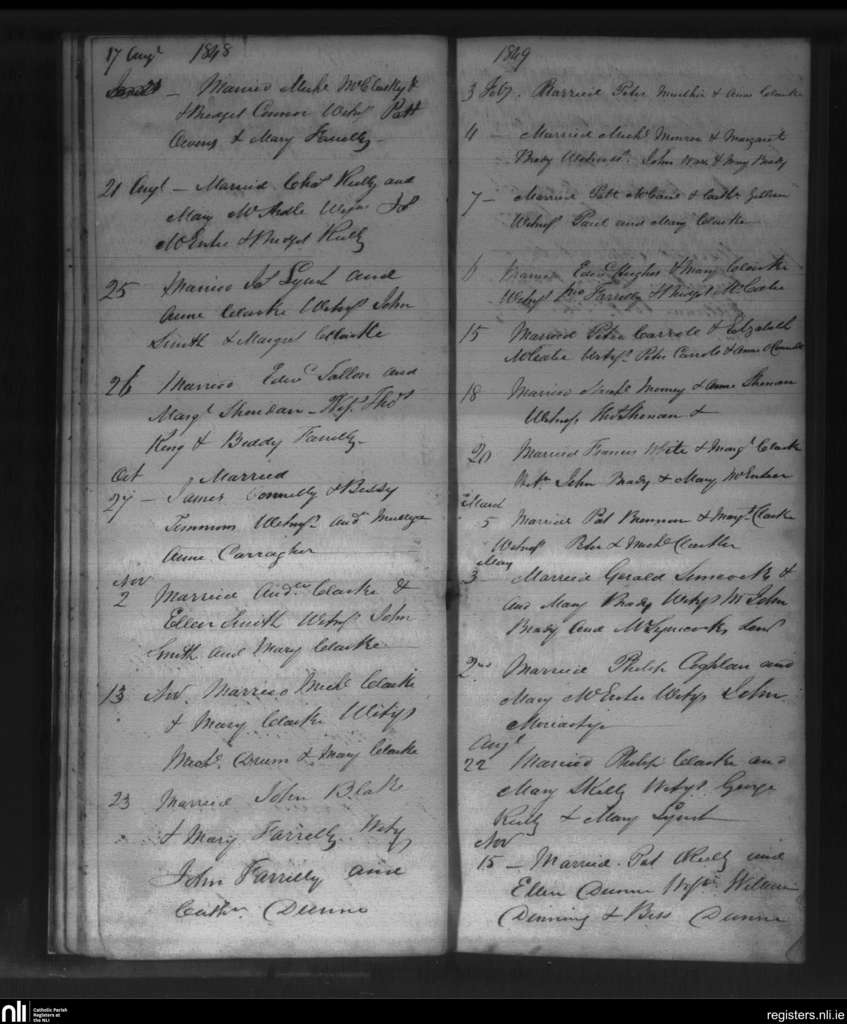 17 Augt 1848
Married Michl McCluskey &
& Bridget Connor Witns Patt
Owens & Mary Farrelly
21 Augt - Married Chas Reilly and
Mary McArdle Js
McEntee & Bridget Reilly
25 Married Js Lynch and
Anne Clarke Witns John
Smith & Margret Clarke
26 Married Edwd Fallon and
Margt Sheridan - Thos
King & Biddy Farrelly
Oct Married
27 - James Connelly & Biddy
Timmons Witns and
Anne Carragher
Nov
2 Married Andw Clarke &
Ellen Smith Witns John
Smith and Mary Clarke
13 Nov. Married Michl Clarke
& Mary Clarke Witns
Michl Drum & Mary Clarke
23 Married John Blake
& Mary Farrelly Witns
John Farrelly and
Cathn Dunne
1849
3 Feby. Married Peter & Anne Clarke
4 - Married Michl & Margaret
Brady John & Mary Brady
7 - Married Patt McCabe & Cathn
Witns Paul and Mary Clarke
6 Married Edwd Hughes & Mary Clarke
Witns Farrelly & Bridget McCabe
15 Married Peter Carroll & Elizabeth
McCabe Witns Peter Carroll & Anne
18 Married & Anne Shenan
Witness Thos Shenan &
20 Married Francis White & Margt Clarke
John Brady & Mary McEntee
March
5 Married Pat Brennan & Margt Clarke
Witns Peter & Michl Clarke
May
3 Married Gerald Simcocks &
and Mary Brady Witns Mr John
Brady and Mr Symcocks
2nd Married Philip Coghlan and
Mary McEntee Witns John
Moriarty
Augt
22 Married Philip Clarke and
Mary Skelly Witns George
Reilly & Mary Lynch
Nov
15 - Married Pat Reilly and
Ellen Dunne William
Denning & Bess Dunne
nli
Catholic Parish
Registers at
the NLI
registers.nli.ie